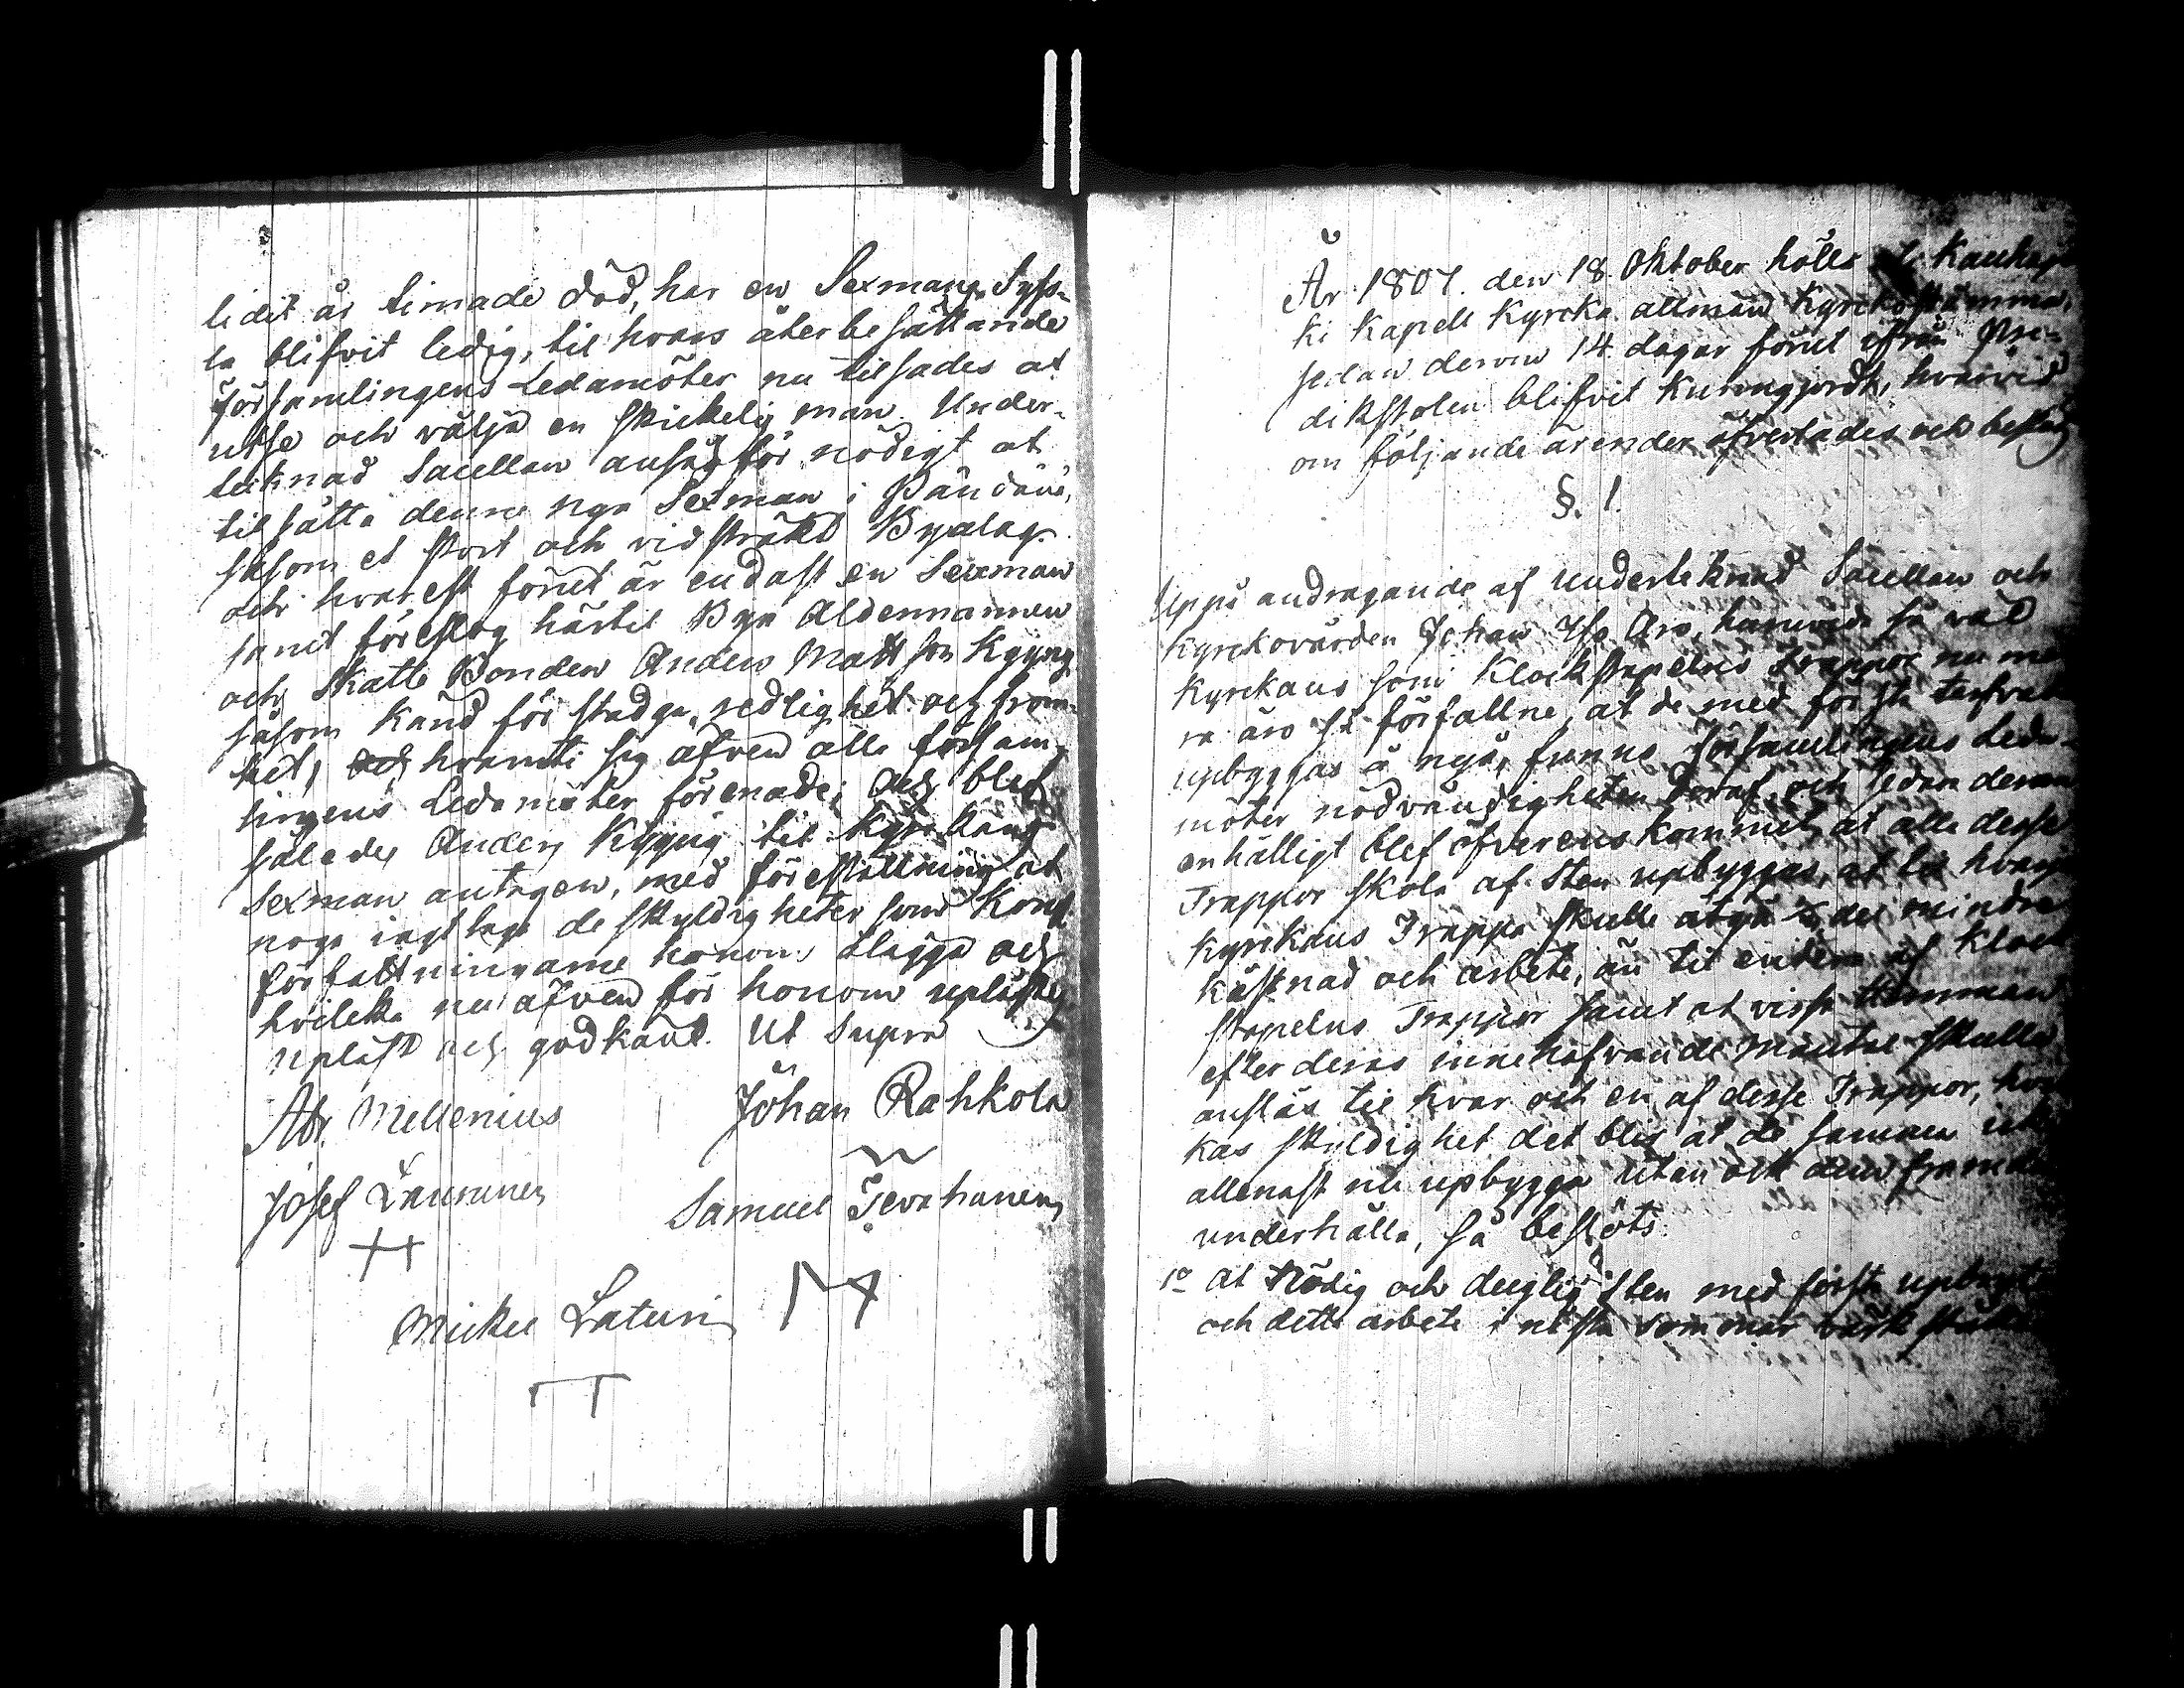 lidit år timade död, har en Sexmans Syss-
la blifvit ledig, til hvars återbesättande
Församlingens Ledamöter nu tilsades at
utse och välja en skickelig man. Under-
teknad Sacellan ansåg för nödigt at
tilsätta denne nya Sexman i Pändäne,
såsom et stort och vidsträkt Byalag
och hvarest förut är endast en Sexman
samt föreslog härtil Bya Åldermannen
och Skatte Bonden Anders Mattson Kyyny
såsom känd för stadga, redlighet och from-
het, hvarmte sig äfven alla Försam-
lingens Ledamöter förenade; och blef
således Anders Kyyny til Kyrkans
Sexman antagen, med föreställning at
noga iagttaga de skyldigheter som Kongl.
författningarne honom ålägga och
hvilcka nu äfven för honom uplästes
Upläst och godkänt. Ut Supra
Abr. Mellenius Johan Rahkola
Josef Laurunen Samuel Tervahanen
Mickel Laturi
År 1807. den 18 Oktober hölls Kauhajo
ki Kapell Kyrcka allmän Kyrckostämma,
sedan derom 14 dagar förut ifrån Pre-
dikstolen blifvit kunnggjordt, hvarvid
om följande ärender öfverlades och beslöts
§. 1.
Uppå andragande af underteknad Sacellan och
Kyrckovärden Johan Aro, huruvida så väl
Kyrckans som Klockstapelns Trappor nu me
ra äro så förfallne, at de med första
upbyggas å nyo, funno Församlingens Leda-
möter nödvändigheten deraf, och sedan derom
enhälligt blef öfverenskommit, at alla desse
Trappor skola af Sten upbyggas, at
Kyrckans Trappa skulle åtgå del mindre
kåstnad och arbete, än til endera af Klock
stapelns Trappor samt at visse Hemman
efter deras innehafvande Mantal skulle
anslås til hvar och en af desse Trappor,
kas skyldighet det blir at de samma ick
allenast nu upbygga utan ock dem framdeles
underhålla, så beslöts.
1o at Nödig och duglig Sten med första
och detta arbete i nästa sommar